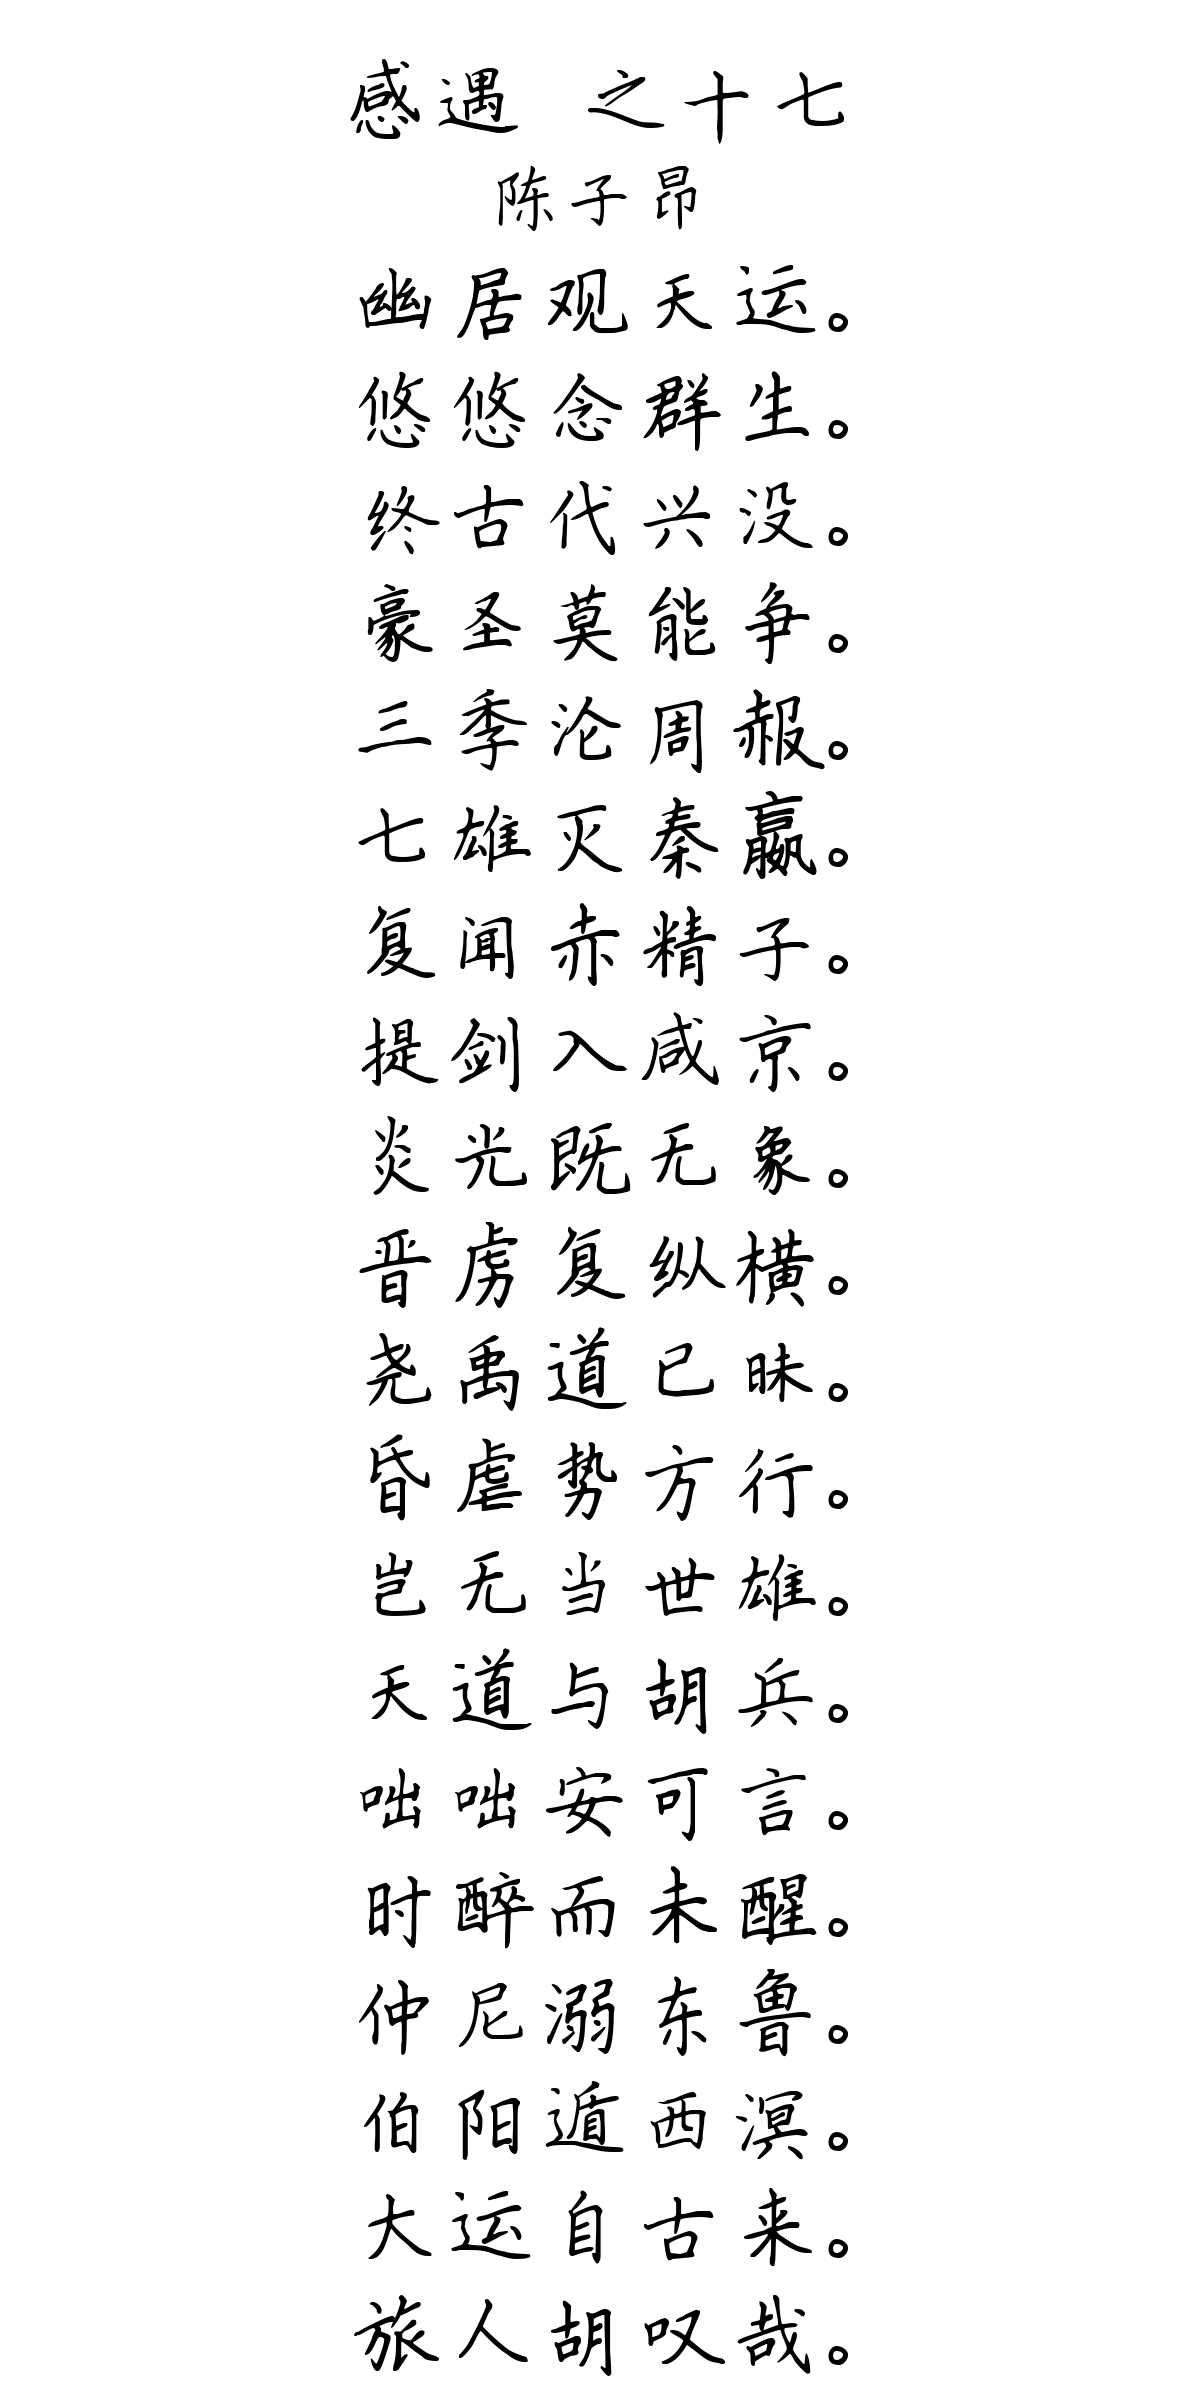 感遇 之十七
陈子昂
幽居观天运。
悠悠念群生。
终古代兴没。
豪圣莫能争。
三季沦周赧。
七雄灭秦嬴。
复闻赤精子。
提剑入咸京。
炎光既无象。
晋虏复纵横。
尧禹道已昧。
昏虐势方行。
岂无当世雄。
天道与胡兵。
咄咄安可言。
时醉而未醒。
仲尼溺东鲁。
伯阳遁西溟。
大运自古来。
旅人胡叹哉。